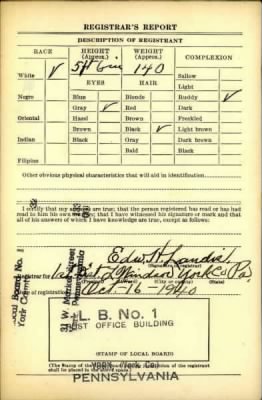 REGISTRAR'S REPORT
DESCRIPTION OF REGISTRANT
RACE HEIGHT (Approx.) WEIGHT (Approx.) COMPLEXION
White ✓ 5 ft 6 in 140 Sallow
EYES HAIR Light
Negro Blue Blonde Ruddy ✓
Gray ✓ Red Dark
Oriental Hazel Brown Freckled
Brown Black ✓ Light brown
Indian Black Gray Dark brown
Bald Black
Filipino
Other obvious physical characteristics that will aid in identification
I certify that my answers are true; that the person registered has read or has had
read to him his own answers; that I have witnessed his signature or mark and that
all of his answers of which I have knowledge are true, except as follows:
Edw. H. Landis
Registrar for Windsor York Co Pa.
(City or county) (State)
Date of registration Oct-16-1940
Local Board No.
York County
31 W. Market Street
Pennsylvania
L. B. No. 1
POST OFFICE BUILDING
(STAMP OF LOCAL BOARD)
YORK, York Co.
PENNSYLVANIA
(The Stamp of the Local Board of the registrant
shall be placed in the above space.)